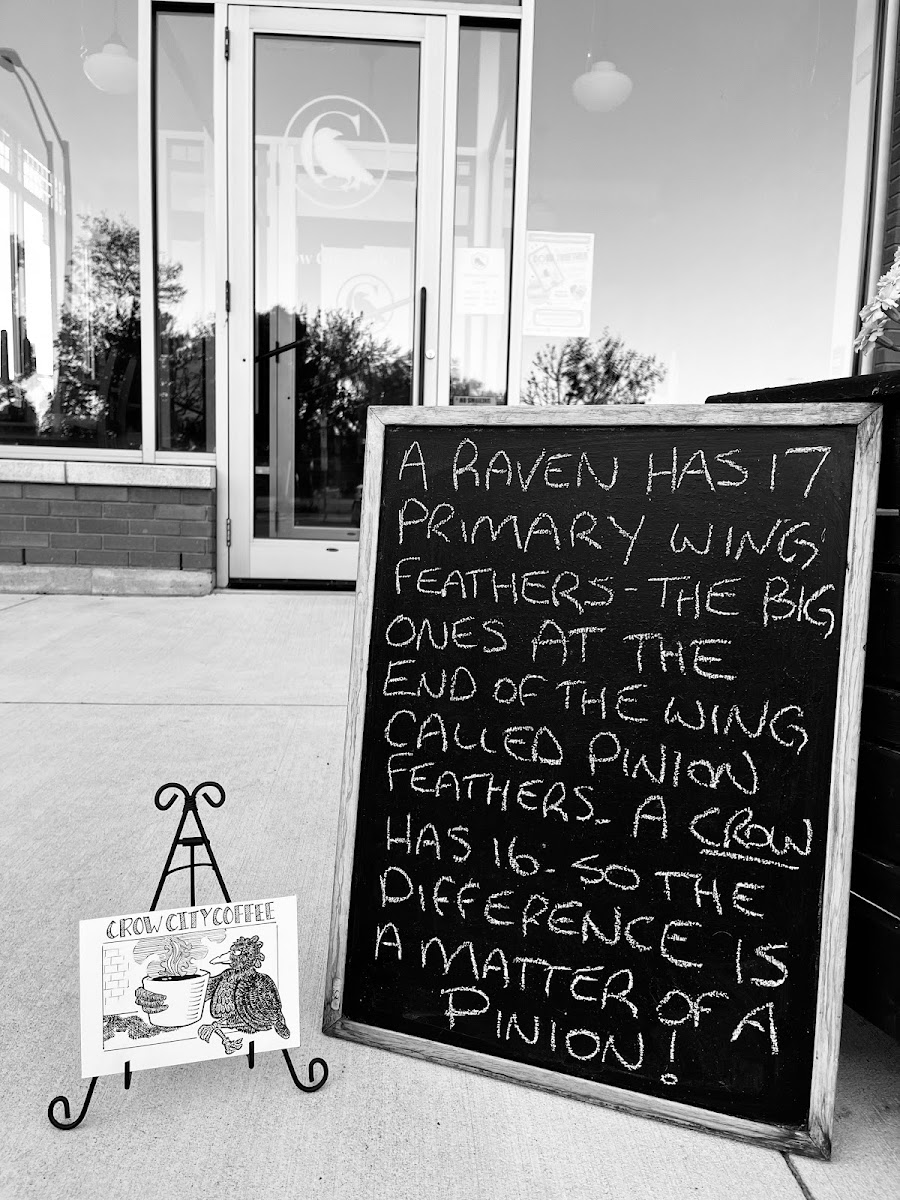 C
A RAVEN HAS 17
PRIMARY WING
FEATHERS - THE BIG
ONES AT THE
END OF THE WING
CALLED PINION
FEATHERS - A CROW
HAS 16. SO THE
DIFFERENCE IS
A MATTER OF A
PINION!
CROW CITY COFFEE